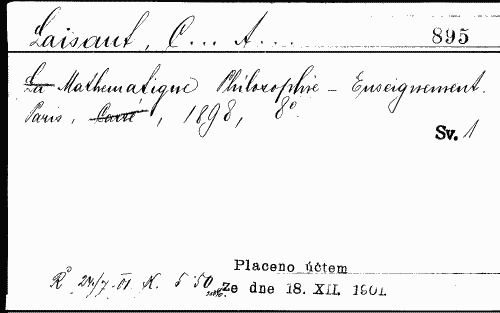 Laisant, C... A...
895
La Mathematique Philosophie – Enseignement.
Paris, Carré, 1898, 8°
Sv. 1
Placeno účtem
R° 24/7 01 K. 5·50 ze dne 18. XII. 1901